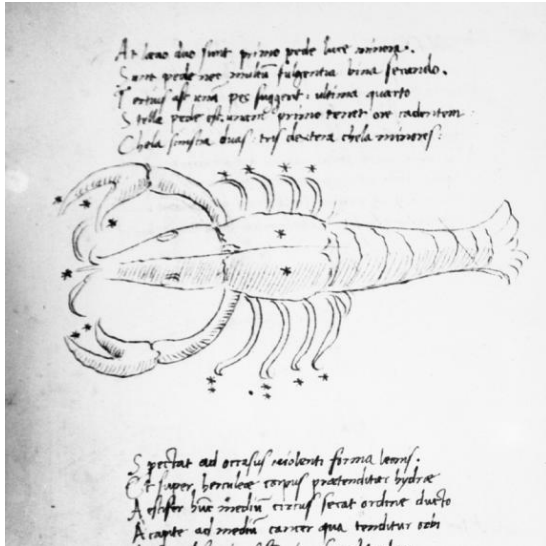 At laevo duo sunt primo pede luce minora.
Sunt pede nec multum fulgentia bina secundo.
Tertius ast unam pes suggerit: ultima quarto
Stella pede est. unamque primo tenet ore cadentem
Chela sinistra duas: tris dextera chela minores:
Spectat ad occasus violenti forma leonis.
Et super herculeae corpus praetenditur hydrae
Aestifer hunc medium circus secat ordine ducto
A capite ad medium cancer qua tenditur orbi